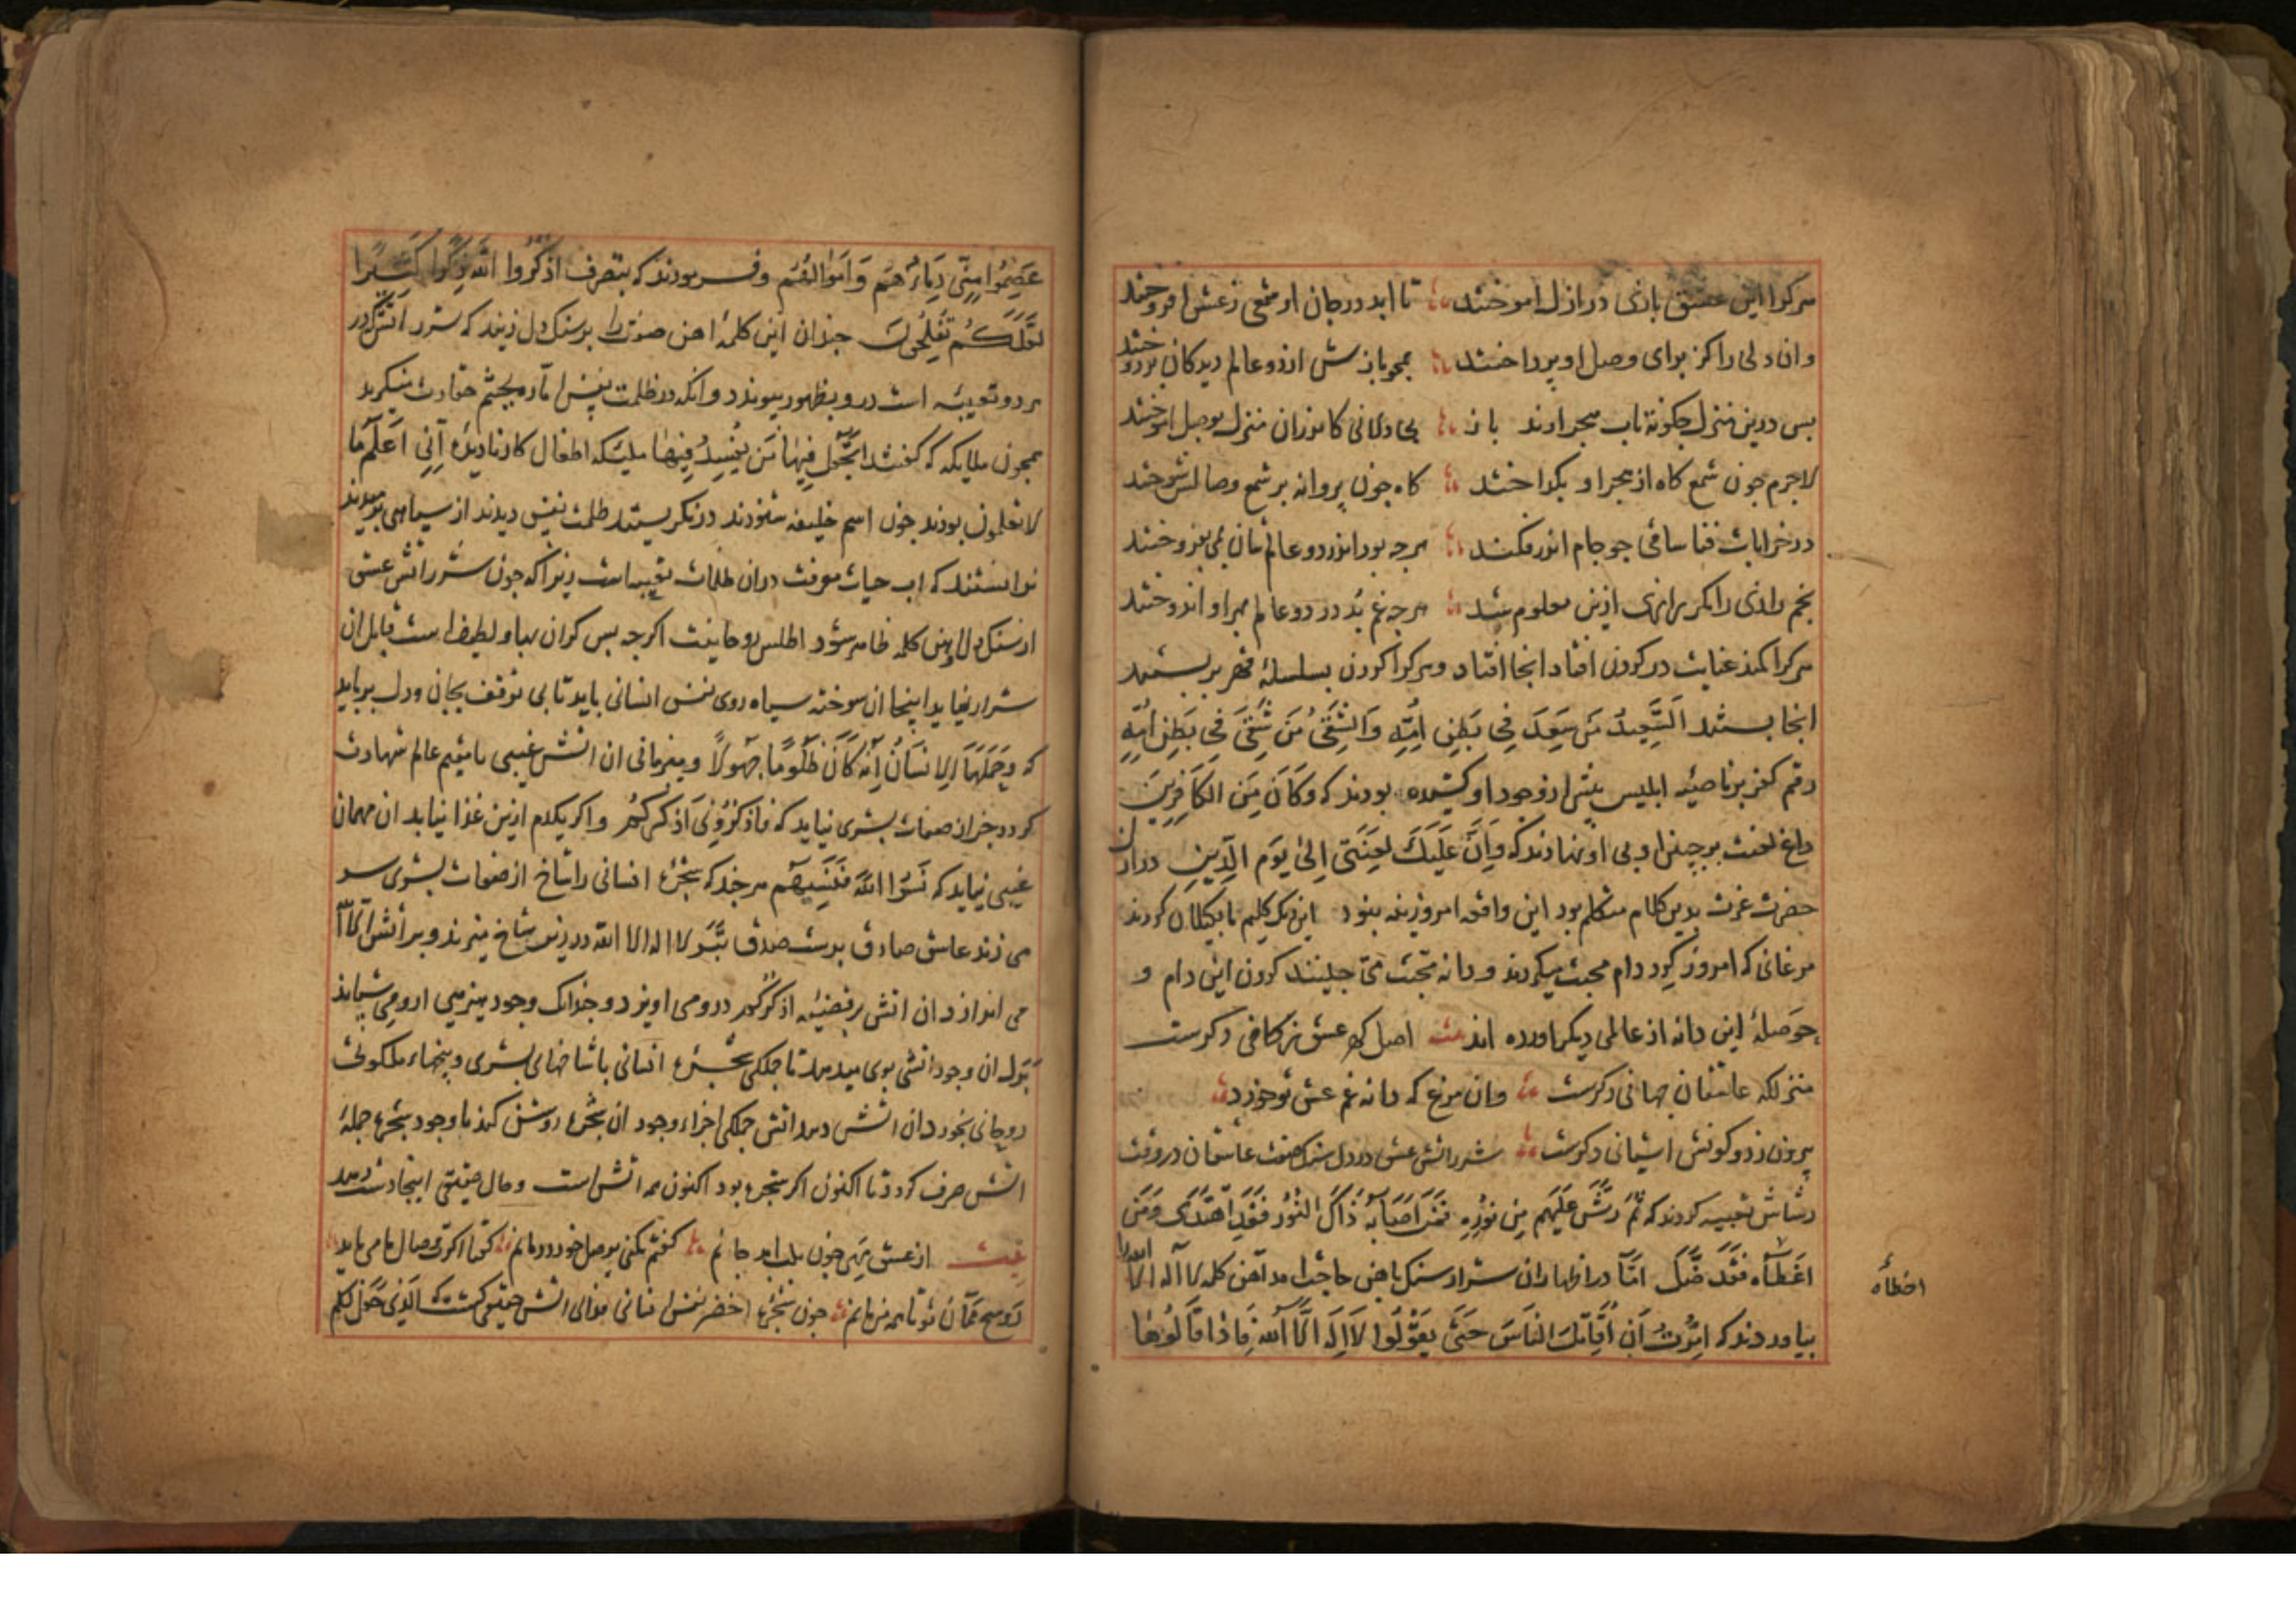 هرکرا این عشق بازی در ازل آموختند تا ابد در جان او شمعی ز عشق افروختند
وان دلی را کز برای وصل او پرداختند همچو بازش از دو عالم دیدکان بردوختند
بس درین منزل چکونه تاب هجر آرند باز بی دلانی کاندران منزل بوصل آموختند
لاجرم جون شمع کاه از هجر او بکداختند کاه جون پروانه بر شمع وصالش سوختند
در خرابات فنا ساقی جو جام اندر فکند هرجه بود اندر دو عالمشان بمی بفروختند
نجم رازی را مکر رازی ازین معلوم شد هرجه غم بُد در دو عالم بهر او اندوختند
هرکرا کمند عنایت در کردن افتاد انجا افتاد وهرکرا کردن بسلسلهٔ قهر بربستند
انجا بستند اَلسَّعِیدُ مَن سَعِدَ فِی بَطنِ اُمِّهِ وَالشَّقِیُّ مَن شَقِیَ فِی بَطنِ اُمِّهِ
رقم کفر بر ناصیهٔ ابلیس بیش از وجود او کشیده بودند که وَکَانَ مِنَ الکَافِرِینَ
داغ لعنت بر جبین او نهادند که وَاِنَّ عَلَیکَ لَعنَتِی اِلیٰ یَومِ الدِّینِ دران
حضرت عزت بدین کلام متکلم بود این واقعه امروزینه نبود این یک کلیم با بیکلان کردند
مرغانی که امروز کرد دام محبت میکردند و دانه محبت می جینند کردن این دام و
حوصلهٔ این دانه از عالمی دیکر آورده اند اصل کهر عشق ز کانی دکرست
منزلکه عاشقان جهانی دکرست وان مرغ که دانه غم عشق تو خورد
بیرون ز دو کونش اشیانی دکرست شرر اتش عشق در دل سنک صفت عاشقان در وقت
رشاش تعبیه کردند که ثُمَّ رَشَّ عَلَیهِم مِن نُورِهِ فَمَن اَصَابَهُ ذَاکَ النُّورُ فَقَدِ اهتَدَی وَمَن
اَخطَأَه فَقَد ضَلَّ امّا در اظهار ان شرار سنک باهن حاجت امد آهن کلمه لا اله الا الله را
بیاوردند که اُمِرتُ اَن اُقَاتِلَ النَّاسَ حَتَّی یَقُولُوا لَا اِلَهَ اِلَّا اللّه فَاِذَا قَالُوهَا
اخطأه
عَصِمُوا مِنِّی دِمَاءَهُم وَاَموَالَهُم وفرمودند که بتصرف اذکُرُوا اللّهَ ذِکراً کَثِیراً
لَعَلَّکُم تُفلِحُونَ جندان این کلمهٔ اهن صفت را بر سنک دل زنند که شرر آتش که در
بردو تعبیه است درو بظهور بیوندد وانکه در ظلمت نفس امّاره بجشم حقارت ننکرید
همجون ملایکه که کفتند اَتَجعَلُ فِیهَا مَن یُفسِدُ فِیهَا ملیکه اطفال کارنادیدهٔ اِنِّی اَعلَمُ مَا
لا تعلمون بودند جون اسم خلیفه شنودند درنکریستند ظلمت نفس دیدند از سیاهی برمیدند
ندانستند که اب حیات معرفت دران ظلمات تعبیه است زیرا که جون شرر اتش عشق
از سنک دل باهن کلمه ظاهر شود اطلس روحانیت اکرجه بس کران بها و لطیف است قابل ان
شرار نیاید اینجا ان سوخته سیاه روی نفس انسانی باید تا بی توقف بجان ودل برباید
که وَحَمَلَهَا الاِنسَانُ اِنَّهُ کَانَ ظَلُومًا جَهُولاً ومیزبانی ان اتش غیبی با مقیم عالم شهادت
کردد جز از صفات بشری نیاید که فَاذکُرُونِی اَذکُرکُم واکر یکدم ازین غذا نیابد ان مهمان
غیبی نیاید که نَسُوا اللّهَ فَنَسِیَهُم هر جند که شجرهٔ انسانی را شاخ از صفات بشری سر
می زند عاشق صادق بدست صدق بتبر لا اله الا الله در زیر شاخ میزند وبر اتش الا الله
می اندازد ان اتش برقضیهٔ اذکرکم درومی اویزد و جندانک وجود هیزمی ازو می ستاند
بَدَل ان وجود اتشی بوی میدهد تا جملکی شجرهٔ انسانی با شاخهای بشری وبیخهاء ملکوتی
روحانی بخورد ان اتش دهد اتش جملکی اجزاء وجود ان شجرهٔ روشن کند تا وجود شجره جملهٔ
اتش صرف کردد تا اکنون اکر شجره بود اکنون همه اتش است ووصال حقیقی اینجا دست دهد
بیت از عشق رخت جون بلب امد جانم کفتم بکنی بوصل خود درمانم کفتا اکرت وصال ما می باید
رو هیچ ممان تو تا همه من مانم جون شجرهٔ اخضر نفس انسانی فدای اتش حقیقی کشت که الَّذِی جَعَلَ لَکُم